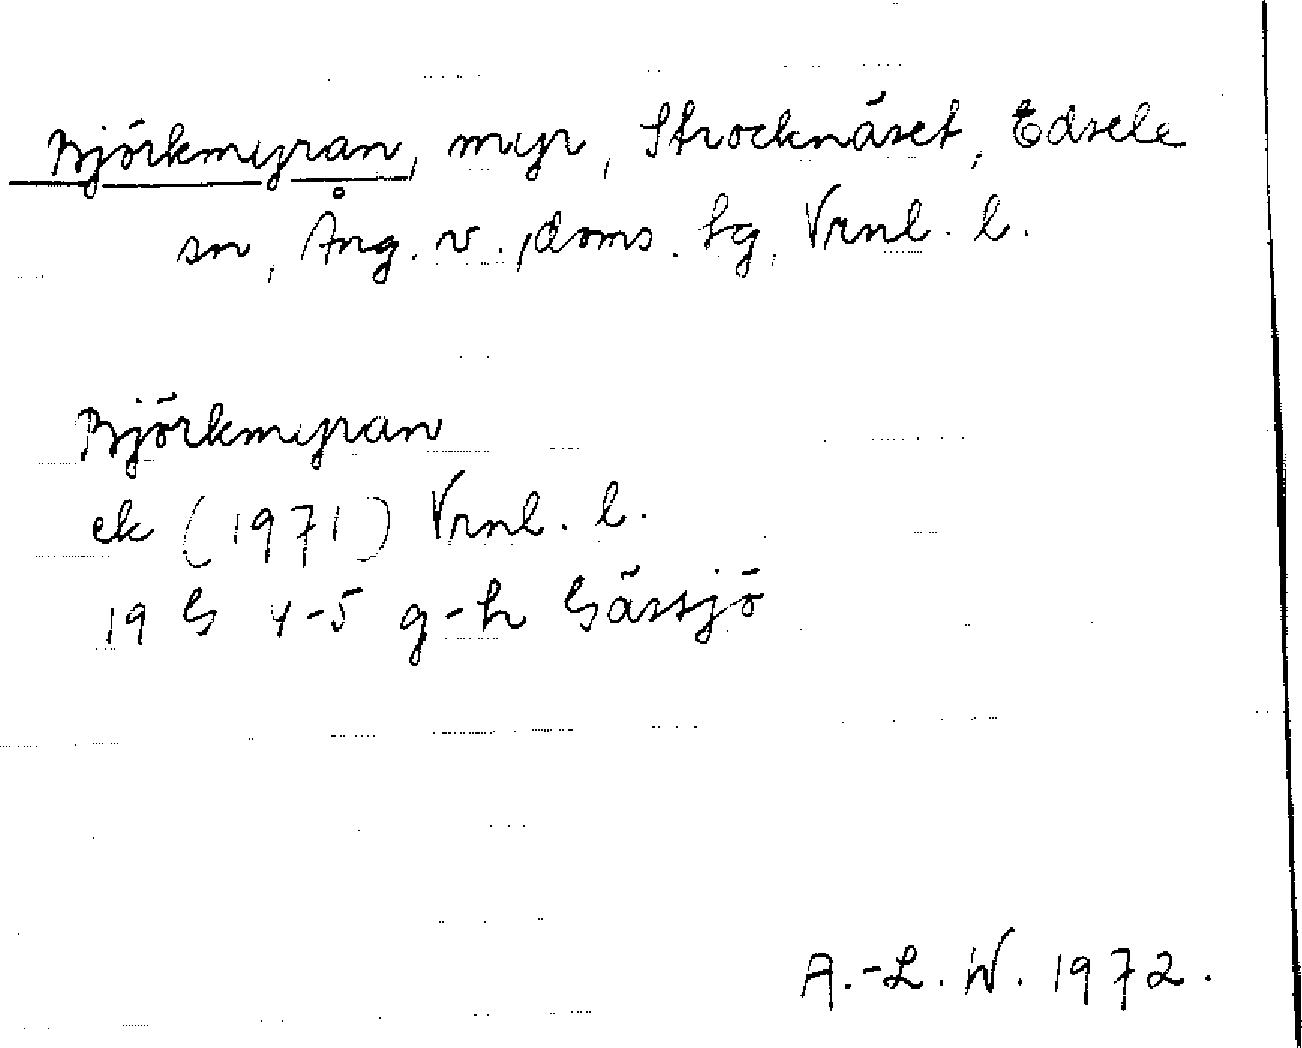 Björkmyran, myr, Strocknäset, Edsele
sn, Ång. v. ,doms. sg, Vrnl. l.
Björkmyran
ek (1971) Vrnl. l.
19 G 4-5 g-h Gässjö
A.-L. W. 1972.